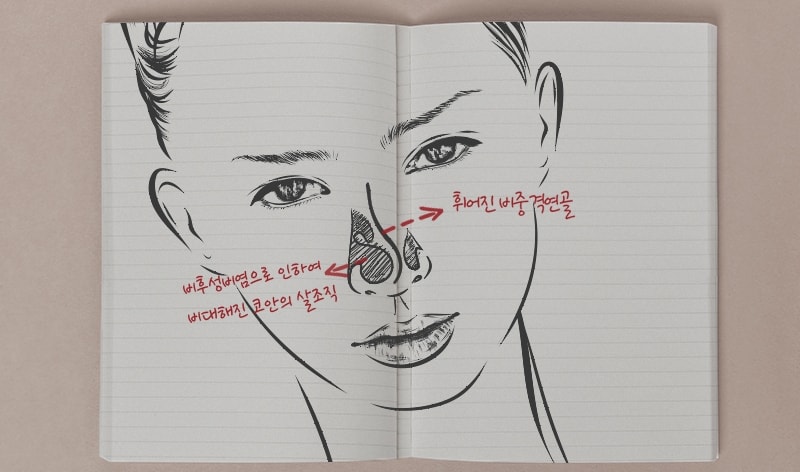 휘어진 비중격연골
비후성비염으로 인하여
비대해진 코안의 살조직